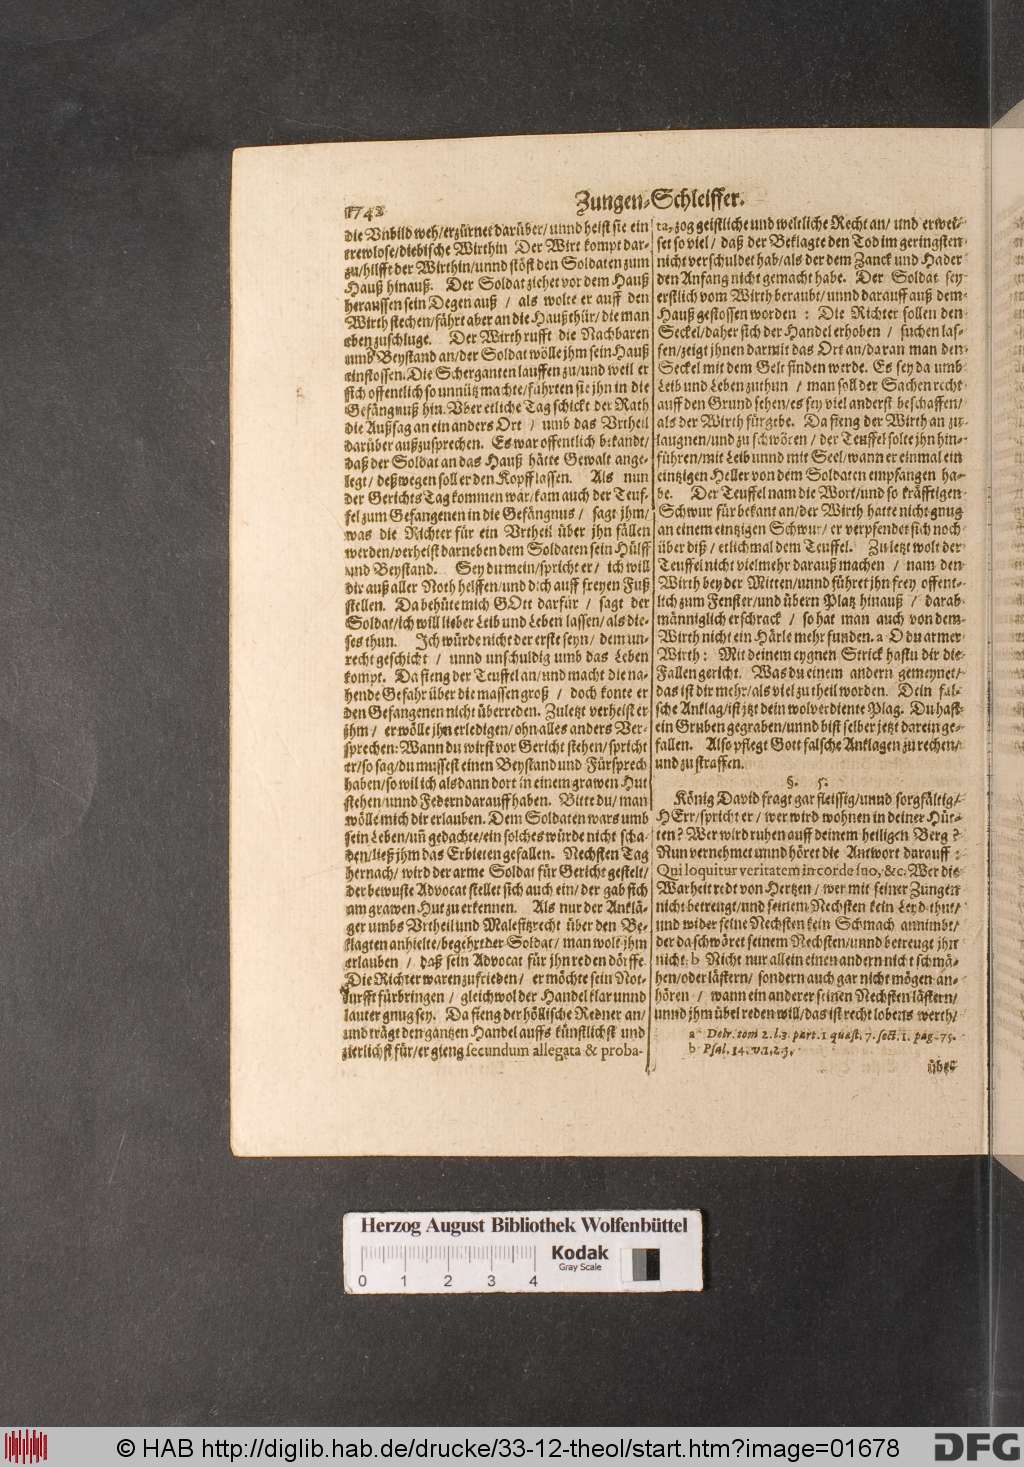 1742
Zungen-Schleiffer.
die Vnbild weh/erzürnet darüber/unnd heist sie ein
trewlose/diebische Wirthin Der Wirt kompt dar-
zu/hilfft der Wirthin/unnd stöst den Soldaten zum
Hauß hinauß. Der Soldat ziehet vor dem Hauß
heraussen sein Degen auß / als wolte er auff den
Wirth stechen/fährt aber an die Haußthür/die man
eben zuschluge. Der Wirth rufft die Nachbaren
umb Beystand an/der Soldat wölle jhm sein Hauß
einstossen. Die Scherganten lauffen zu/und weil er
sich offentlich so unnütz machte/führten sie jhn in die
Gefängnuß hin. Vber etliche Tag schickt der Rath
die Außsag an ein anders Ort / umb das Vrtheil
darüber außzusprechen. Es war offentlich bekandt/
daß der Soldat an das Hauß hätte Gewalt ange-
legt/ deßwegen soll er den Kopff lassen. Als nun
der Gerichts Tag kommen war/kam auch der Teuf-
fel zum Gefangenen in die Gefängnus / sagt jhm/
was die Richter für ein Vrtheil über jhn fällen
werden/verheist darneben dem Soldaten sein Hülff
und Beystand. Sey du mein/spricht er/ ich will
dir auß aller Noth helffen/und dich auff freyen Fuß
stellen. Da behüte mich GOtt darfür / sagt der
Soldat/ich will lieber Leib und Leben lassen/als die-
ses thun. Ich würde nicht der erste seyn/ dem un-
recht geschicht / unnd unschuldig umb das Leben
kompt. Da fieng der Teuffel an/und macht die na-
hende Gefahr über die massen groß / doch konte er
den Gefangenen nicht überreden. Zuletzt verheist er
jhm / er wölle jhn erledigen/ohn alles anders Ver-
sprechen: Wann du wirst vor Gericht stehen/spricht
er/so sag/du mussest einen Beystand und Fürsprech
haben/so wil ich alsdann dort in einem grawen Hut
stehen/unnd Federn darauff haben. Bitte du/man
wölle mich dir erlauben. Dem Soldaten wars umb
sein Leben/uñ gedachte/ein solches würde nicht scha-
den/ließ jhm das Erbieten gefallen. Nechsten Tag
hernach/ wird der arme Soldat für Gericht gestelt/
der bewuste Advocat stellet sich auch ein/der gab sich
am grawen Hut zu erkennen. Als nur der Anklä-
ger umbs Vrtheil und Malefitzrecht über den Be-
klagten anhielte/begehrt der Soldat/ man wolt jhm
erlauben / daß sein Advocat für jhn reden dörffe
Die Richter waren zufrieden / er möchte sein Not-
turfft fürbringen / gleichwol der Handel klar unnd
lauter gnug sey. Da fieng der höllische Redner an/
und trägt den gantzen Handel auffs künstlichst und
zierlichst für/er gieng secundum allegata & proba-
ta, zog geistliche und weltliche Recht an/ und erwei-
set so viel / daß der Beklagte den Tod im geringsten
nicht verschuldet hab/als der dem Zanck und Hader
den Anfang nicht gemacht habe. Der Soldat sey
erstlich vom Wirth beraubt/unnd darauff auß dem
Hauß gestossen worden : Die Richter sollen den
Seckel/daher sich der Handel erhoben / suchen las-
sen/zeigt jhnen darmit das Ort an/daran man den
Seckel mit dem Gelt finden werde. Es sey da umb
Leib und Leben zuthun / man soll der Sachen recht
auff den Grund sehen/es sey viel anderst beschaffen/
als der Wirth fürgebe. Da fieng der Wirth an zu
laugnen/und zu schwören / der Teuffel solte jhn hin-
führen/mit Leib unnd mit Seel/wann er einmal ein
eintzigen Heller von dem Soldaten empfangen ha-
be. Der Teuffel nam die Wort/und so kräfftigen
Schwur für bekant an/der Wirth hatte nicht gnug
an einem eintzigen Schwur/ er verpfendet sich noch
über diß / etlichmal dem Teuffel. Zuletzt wolt der
Teuffel nicht vielmehr darauß machen / nam den
Wirth bey der Mitten/unnd führet jhn frey offent-
lich zum Fenster/und übern Platz hinauß / darab
männiglich erschrack / so hat man auch von dem
Wirth nicht ein Härle mehr funden. a O du armer
Wirth : Mit deinem eygnen Strick hastu dir die
Fallen gericht. Was du einem andern gemeynet/
das ist dir mehr/als viel zu theil worden. Dein fal-
sche Anklag/ist jtzt dein wolverdiente Plag. Du hast
ein Gruben gegraben/unnd bist selber jetzt darein ge-
fallen. Also pflegt Gott falsche Anklagen zu rechen/
und zu straffen.
§. 5.
König David fragt gar fleissig/unnd sorgfältig/
HErr/spricht er / wer wird wohnen in deiner Hüt-
ten? Wer wird ruhen auff deinem heiligen Berg ?
Nun vernehmet unnd höret die Antwort darauff :
Qui loquitur veritatem in corde suo, &c. Wer die
Warheit redt von Hertzen / wer mit seiner Zungen
nicht betreugt/und seinem Nechsten kein Leyd thut/
und wider seine Nechsten kein Schmach annimbt/
der da schwöret seinem Nechsten/unnd betreugt jhn
nicht. b Nicht nur allein einen andern nicht schmä-
hen/oder lästern/ sondern auch gar nicht mögen an-
hören / wann ein anderer seinen Nechsten lästern/
unnd jhm übel reden will/das ist recht lobens werth/
a Delr. tom 2. l. 3. part. 1 quæst. 7. sect. 1. pag. 75.
b Psal. 14. v. 1. 2. 3.
über
Herzog August Bibliothek Wolfenbüttel
0 1 2 3 4
Kodak
Gray Scale
© HAB http://diglib.hab.de/drucke/33-12-theol/start.htm?image=01678
DFG